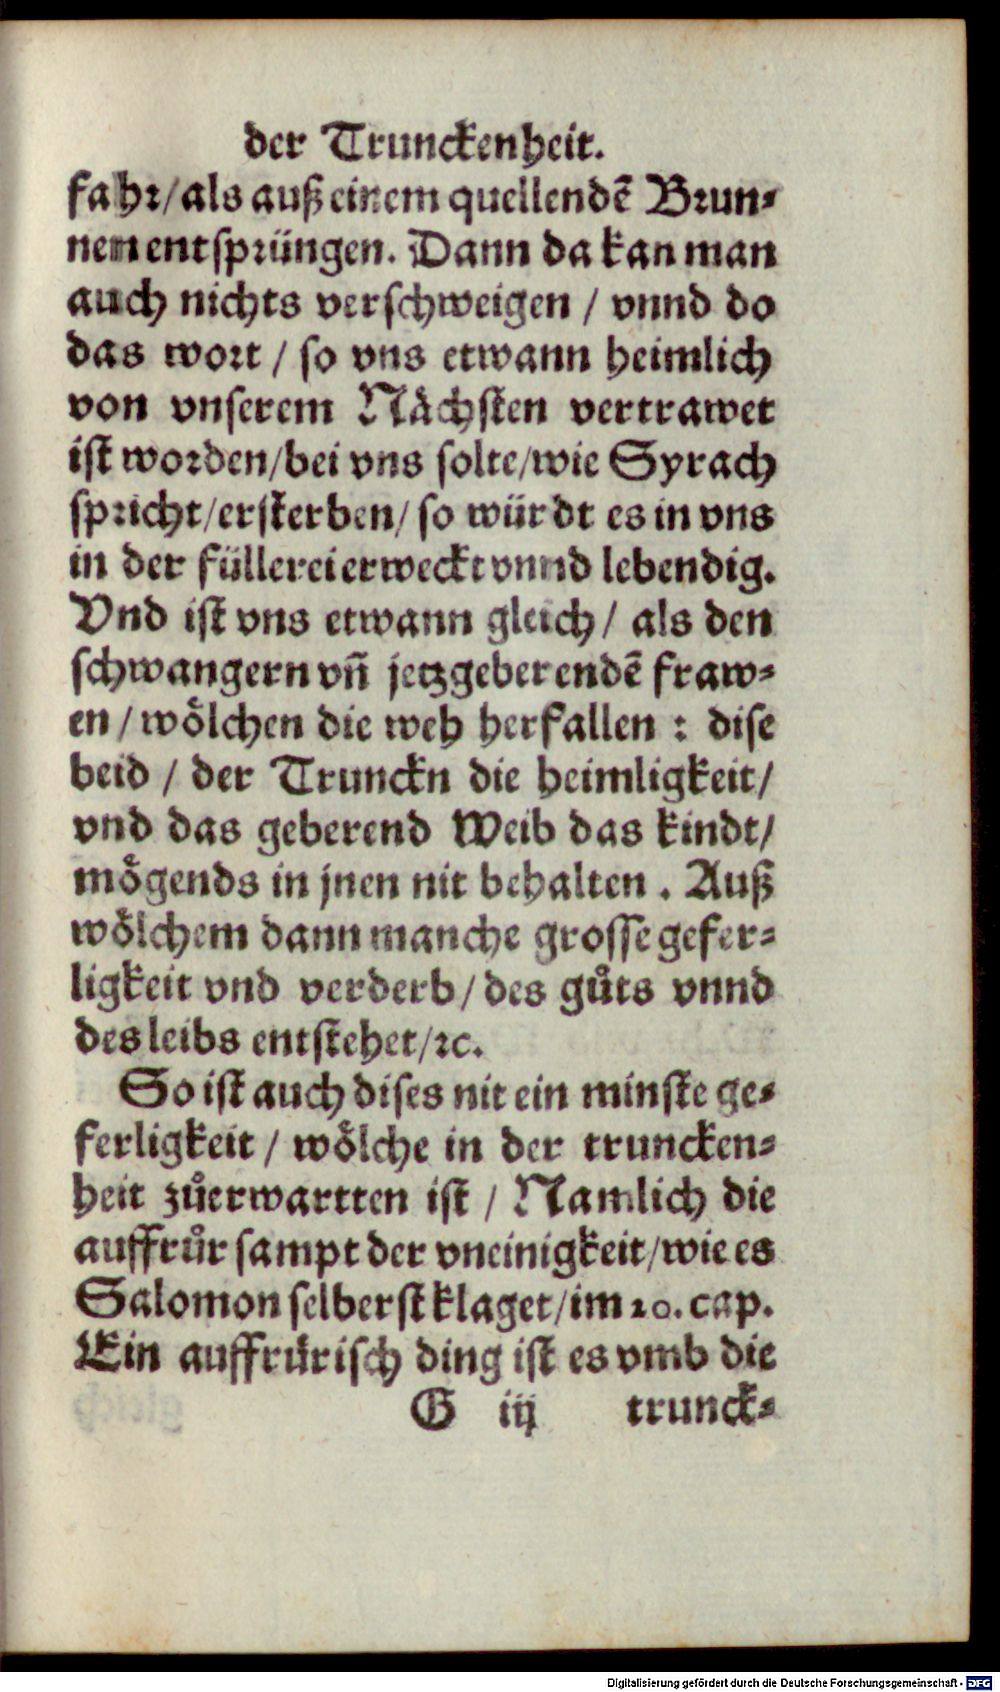 der Trunckenheit.
fahr/als auß einem quellendẽ Brun-
nen entsprüngen. Dann da kan man
auch nichts verschweigen / vnnd do
das wort / so vns etwann heimlich
von vnserem Nächsten vertrawet
ist worden/bei vns solte/wie Syrach
spricht/ersterben/ so würdt es in vns
in der füllerei erweckt vnnd lebendig.
Vnd ist vns etwann gleich / als den
schwangern vñ jetzgeberendẽ fraw-
en / wölchen die weh herfallen : dise
beid / der Trunckn die heimligkeit/
vnd das geberend Weib das kindt/
mögends in jnen nit behalten . Auß
wölchem dann manche grosse gefer-
ligkeit vnd verderb/ des gůts vnnd
des leibs entstehet/ꝛc.
So ist auch dises nit ein minste ge-
ferligkeit / wölche in der truncken-
heit zůerwartten ist / Namlich die
auffrůr sampt der vneinigkeit/wie es
Salomon selberst klaget/im 20. cap.
Ein auffrürisch ding ist es vmb die
G iij trunck-
Digitalisierung gefördert durch die Deutsche Forschungsgemeinschaft - DFG